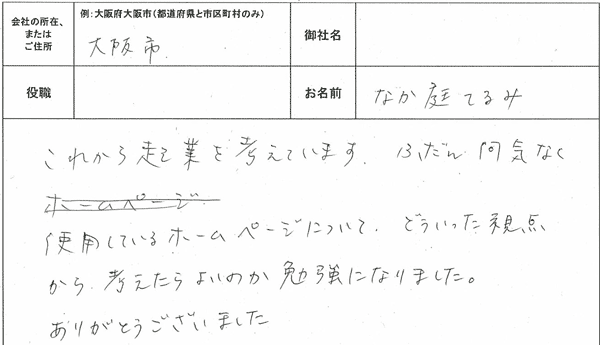 会社の所在、
または
ご住所
例:大阪府大阪市(都道府県と市区町村のみ)
大阪市
御社名
役職
お名前
なか庭てるみ
これから起業を考えています。ふだん何気なく
ホームページ
使用しているホームページについて、どういった視点
から考えたらよいのか勉強になりました。
ありがとうございました